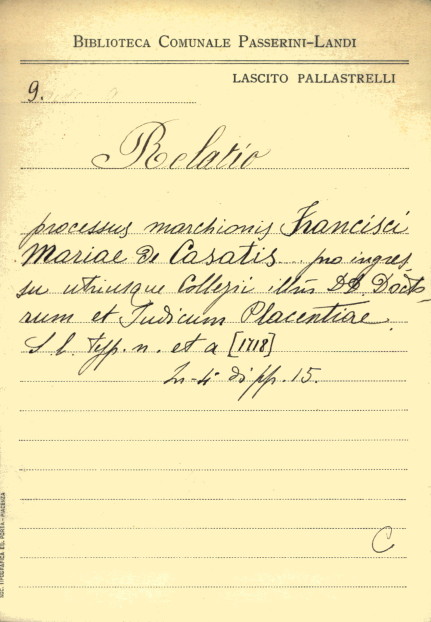 BIBLIOTECA COMUNALE PASSERINI-LANDI
LASCITO PALLASTRELLI
9.
Relatio
processus marchionis Francisci
Mariae De Casatis pro ingres
su utriusque Collegii illm̃ DD. Docto
rum et Judicum Placentiae.
S l. typ. n. et a [1718]
In-4 di pp. 15.
C
SOC. TIPOGRAFICA ED. PORTA-PIACENZA